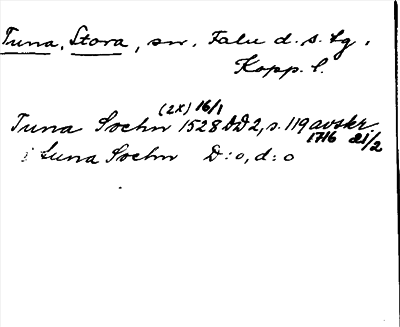 Tuna, Stora, sn, Falu d.s. lg.
Kopp. l.
(2x) 16/1
Tuna Sochn 1528 DD2, s. 119 avskr.
1716 21/2
i tuna Sochn D:o, d:o